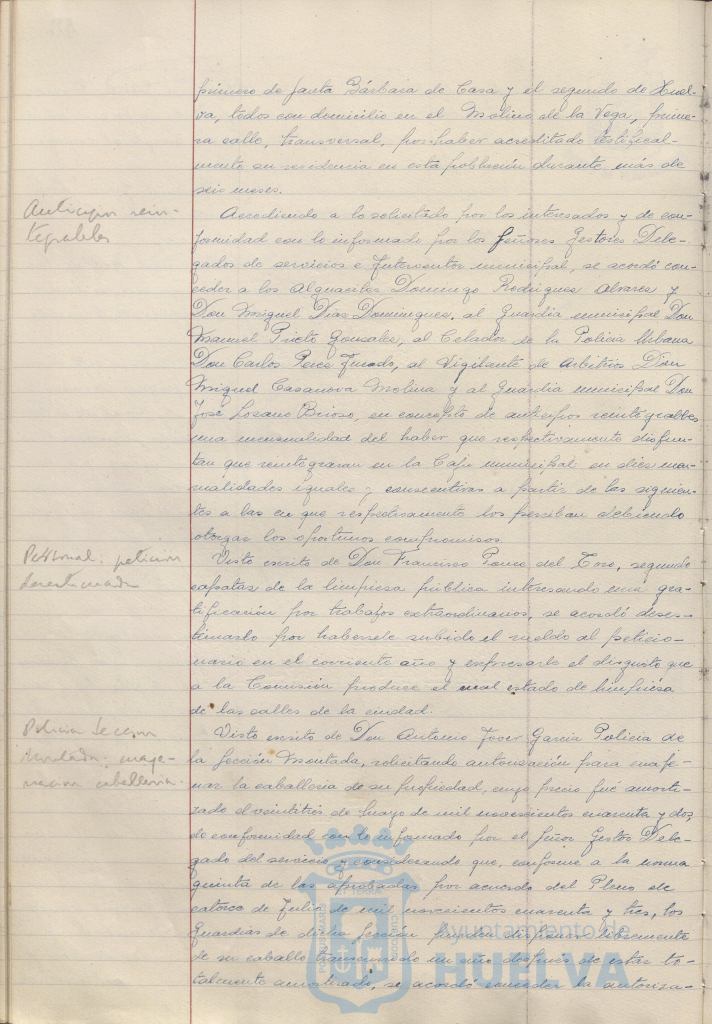 primero de Santa Bárbara de Casa y el segundo de Huel-
va, todos con domicilio en el Molino de la Vega, prime-
ra calle, transversal, por haber acreditado testifical-
mente su residencia en esta población durante más de
seis meses.
Anticipos rein-
tegrables
Accediendo a lo solicitado por los interesados y de con-
formidad con lo informado por los Señores Gestores Dele-
gados de servicios e Interventor municipal, se acordó con-
ceder a los Alguaciles Domingo Rodríguez Alvarez y
Don Miguel Díaz Domínguez, al Guardia municipal Don
Manuel Prieto González, al Celador de la Policía Urbana
Don Carlos Perez Jurado, al Vigilante de Arbitrios Don
Miguel Casanova Molina y al Guardia municipal Don
José Lozano Brioso, en concepto de anticipos reintegrables
una mensualidad del haber que respectivamente disfru-
tan que reintegraran en la Caja municipal en diez men-
sualidades iguales y consecutivas a partir de las siguien-
tes a las en que respectivamente los perciban debiendo
otorgar los oportunos compromisos.
Personal: petición
desestimada
Visto escrito de Don Francisco Ponce del Toro, segundo
capataz de la limpieza pública interesando una gra-
tificación por trabajos extraordinarios, se acordó deses-
timarlo por habersele subido el sueldo al peticio-
nario en el corriente año y expresarle el disgusto que
a la Comisión produce el mal estado de limpieza
de las calles de la ciudad.
Policía Sección
Montada: enaje-
nación caballería.
Visto escrito de Don Antonio García Policía de
la Sección Montada, solicitando autorización para enaje-
nar la caballería de su propiedad, cuyo precio fué amorti-
zado el veintitrés de Mayo de mil novecientos cuarenta y dos,
de conformidad con lo informado por el Señor Gestor Dele-
gado del servicio y considerando que, conforme a la norma
quinta de las aprobadas por acuerdo del Pleno de
catorce de Julio de mil novecientos cuarenta y tres, los
Guardias de dicha Sección pueden disponer libremente
de su caballo transcurrido un año después de estar to-
talmente amortizado, se acordó conceder la autoriza-
Ayuntamiento de
HUELVA